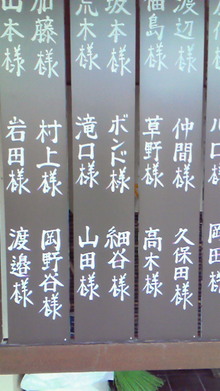 渡辺様
福島様
坂本様
荒木様
加藤様
山本様
川口様
仲間様
草野様
ボンド様
滝口様
村上様
岩田様
岡田様
久保田様
高木様
細谷様
山田様
岡野谷様
渡邉様